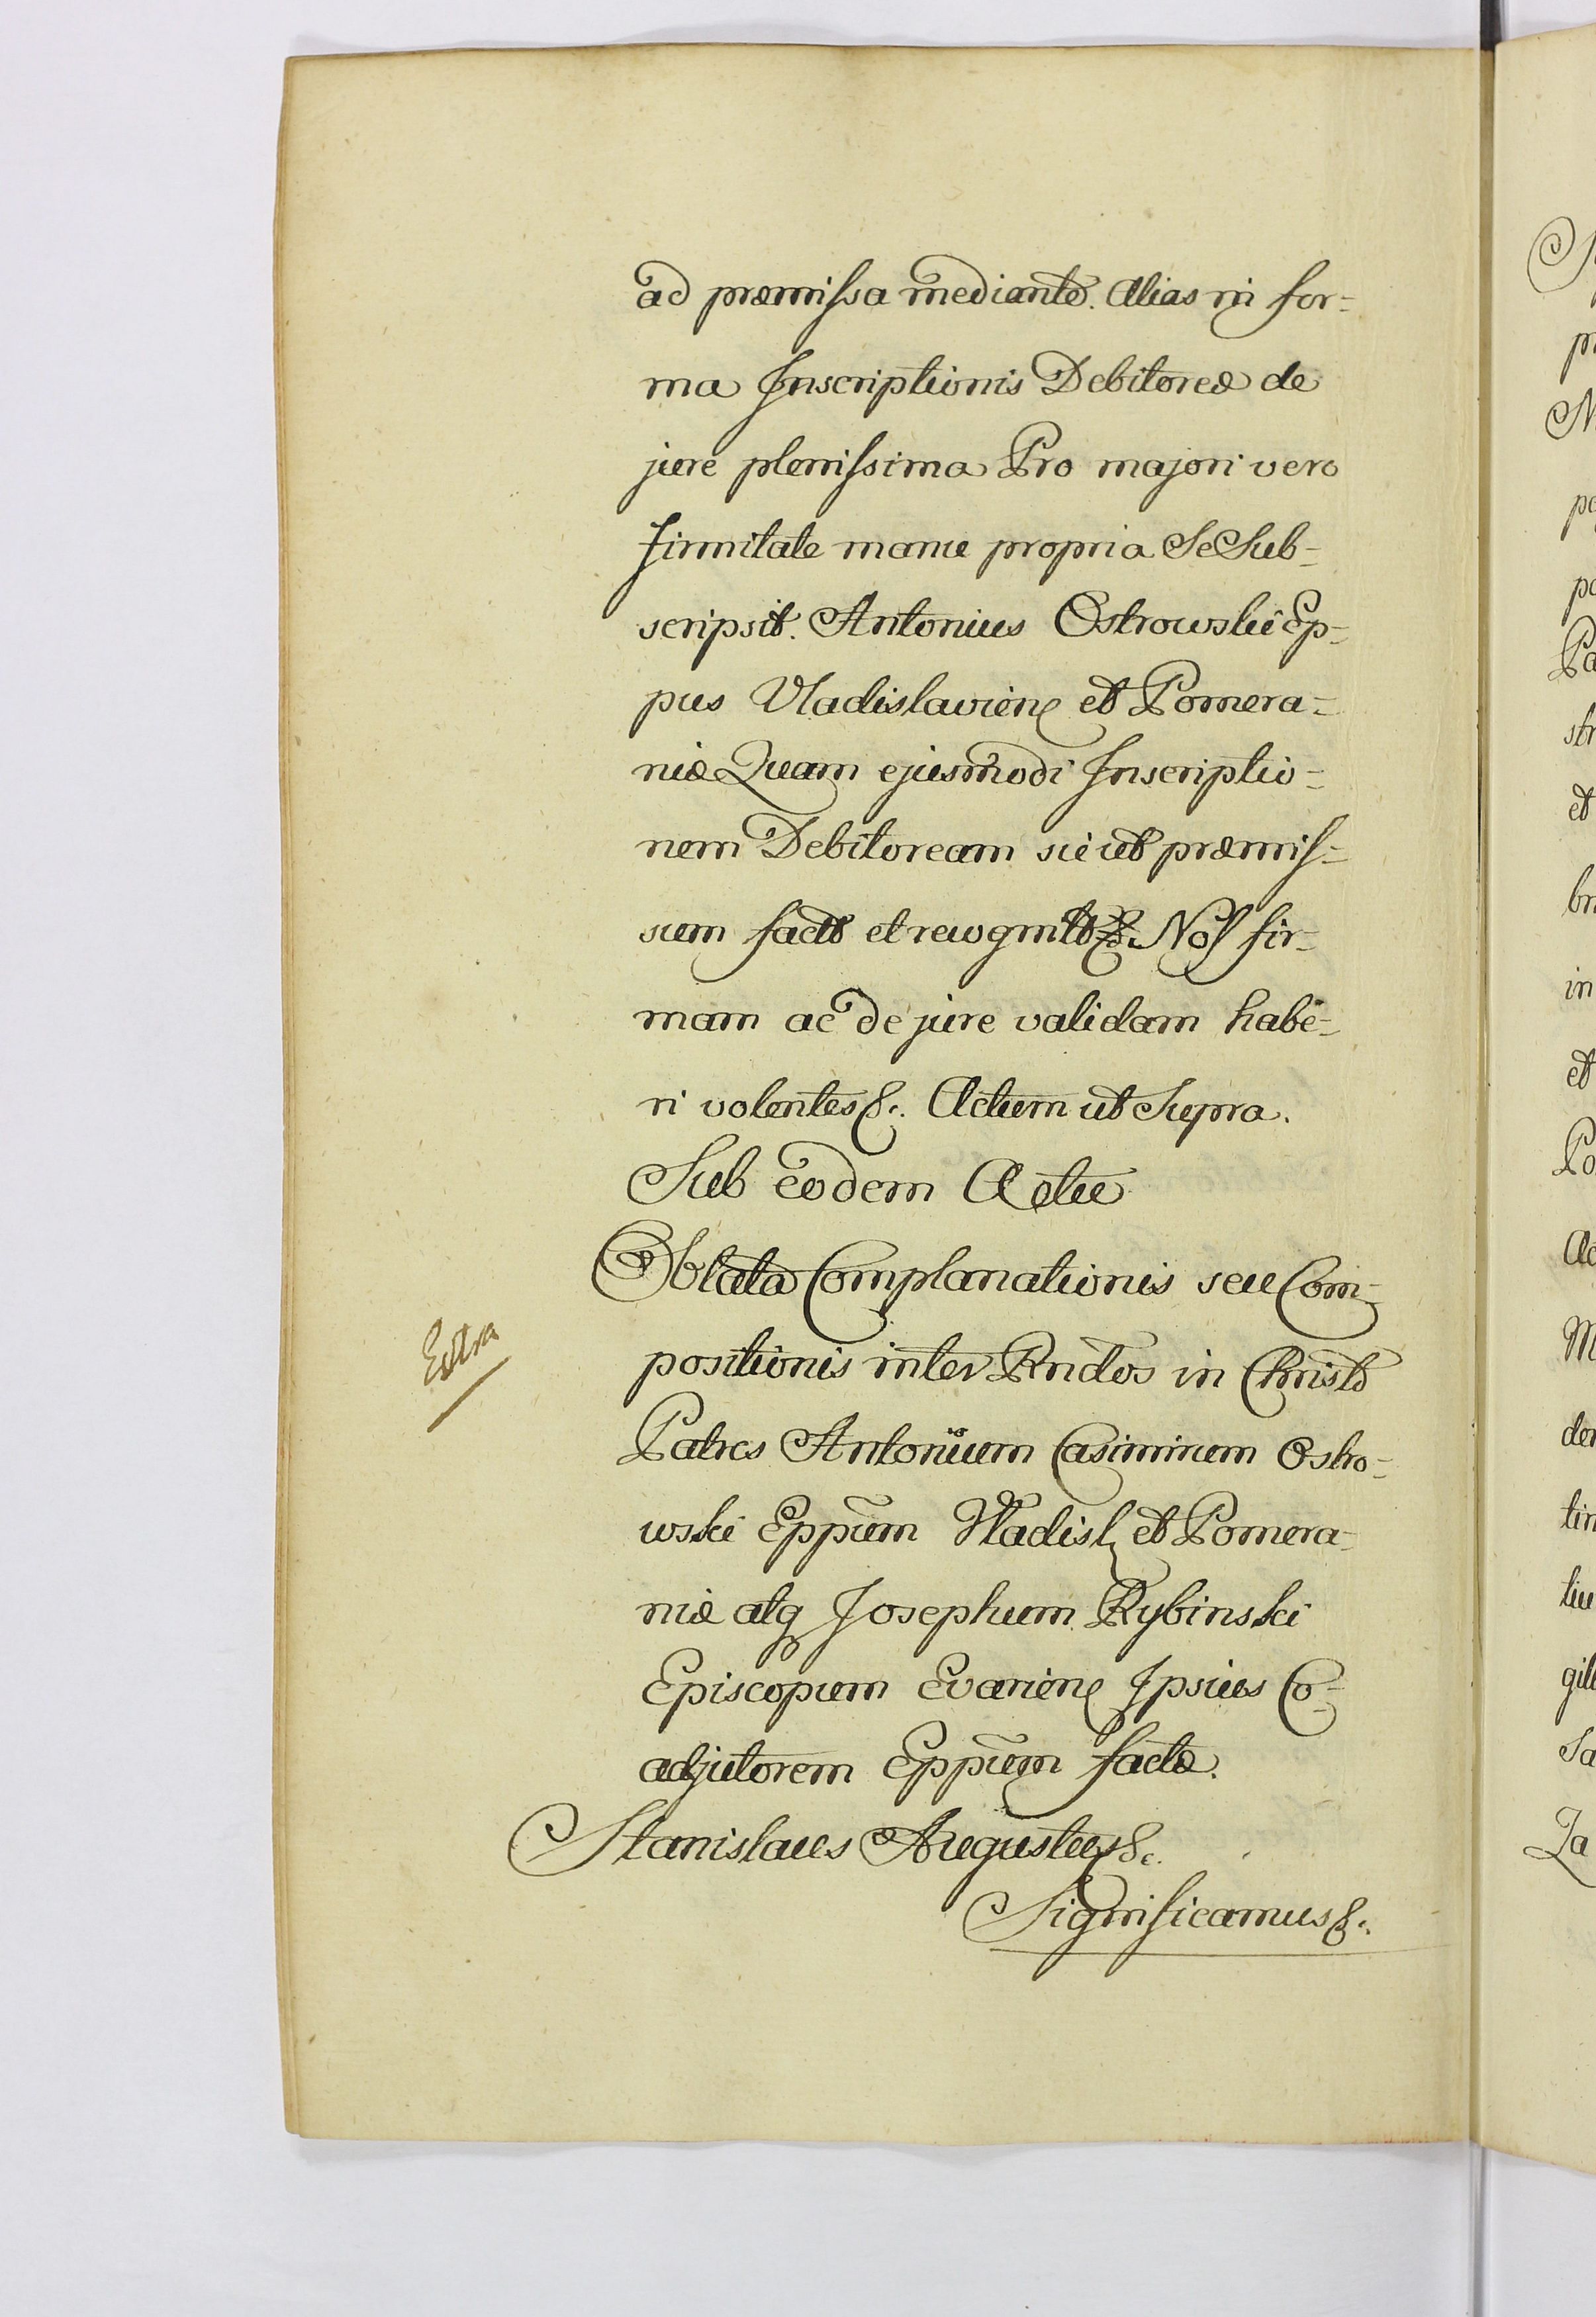 ad præmissa mediante. Alias in for=
ma Inscriptionis Debitoreæ de
jure plenissima Pro majori vero
firmitate manu propria Se Sub=
scripsit. Antonius Ostrowski Ep=
pus Vladislavien et Pomera=
niæ Quam ejusmodi Inscriptio=
nem Debitoream sic ut præmis=
sum facta et recognita &. Nos fir=
mam ac de jure validam habe=
ri volentes &. Actum ut Supra.
Sub eodem Actu
Oblata Complanationis seu Com=
positionis inter Rndos in Christo
Extra
Patres Antonium Casimirum Ostro=
wski Eppum Vladisl et Pomera=
niæ atq Josephum Rybinski
Episcopum Evarien Ipsius Co=
adjutorem Eppum factæ.
Stanislaus Augustus &c.
Significamus &.